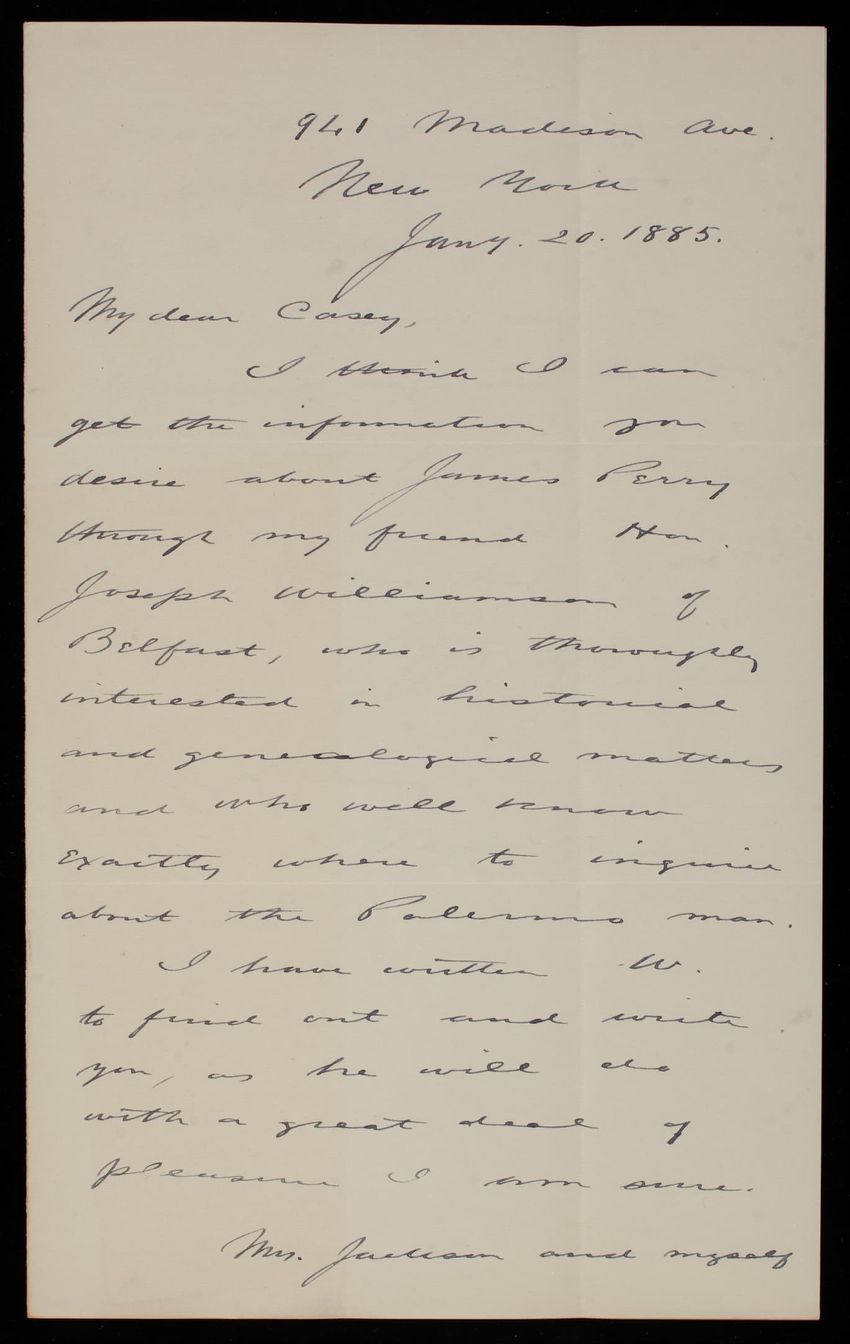 941 Madison Ave.
New York
Jany. 20. 1885.
My dear Casey,
I think I can
get the information you
desire about James Perry
through my friend Hon.
Joseph Williamson of
Belfast, who is thoroughly
interested in historical
and genealogical matters
and who will know
exactly where to inquire
about the Palermo man.
I have written W.
to find out and write
you, as he will do
with a great deal of
pleasure I am sure.
Mrs. Jackson and myself